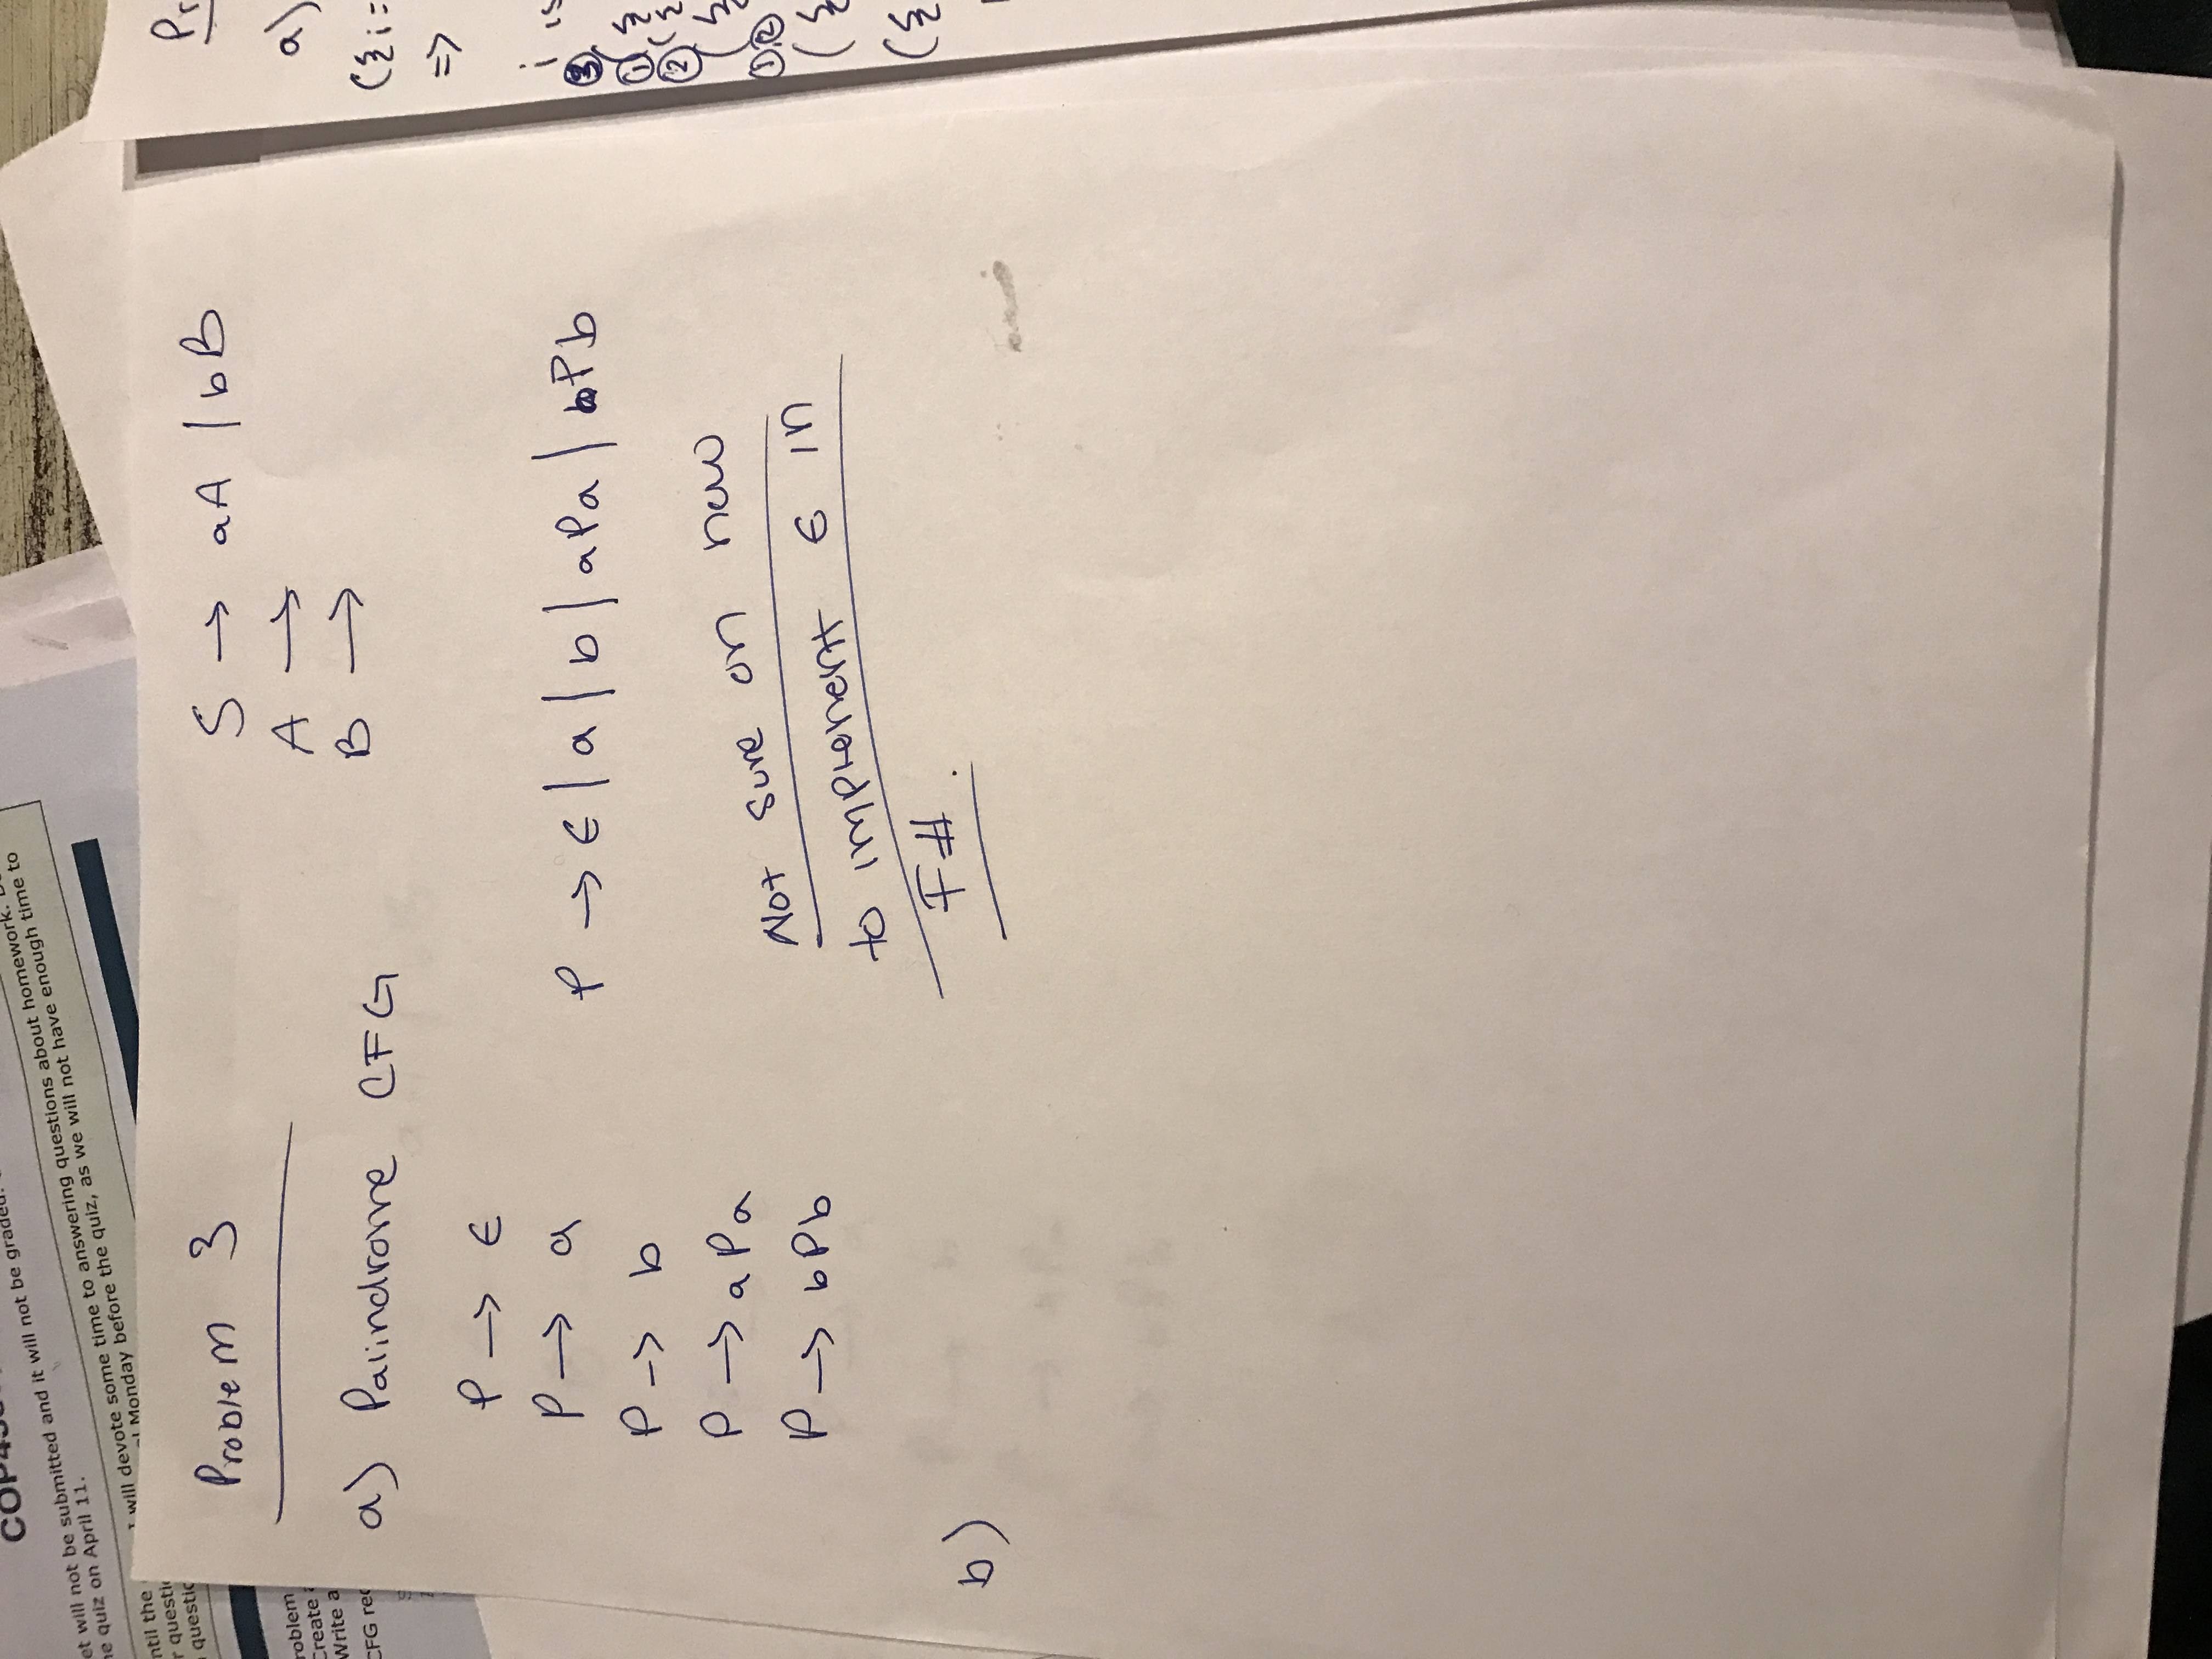 COP45
et will not be submitted and it will not be graded.
e quiz on April 11.
ntil the
I will devote some time to answering questions about homework.
r questi
l Monday before the quiz, as we will not have enough time to
questic
roblem
Create
Write a
CFG rec
Problem 3
S → aA | bB
A →
B →
a) Palindrome CFG
P → ε
P → a
P → b
P → aPa
P → bPb
P → ε | a | b | aPa | bPb
Not sure on how
to implement ε in
F#.
b)
Pr
a)
({i=
=>
i is
3
1 {
2 ({
({
1,2
({
({